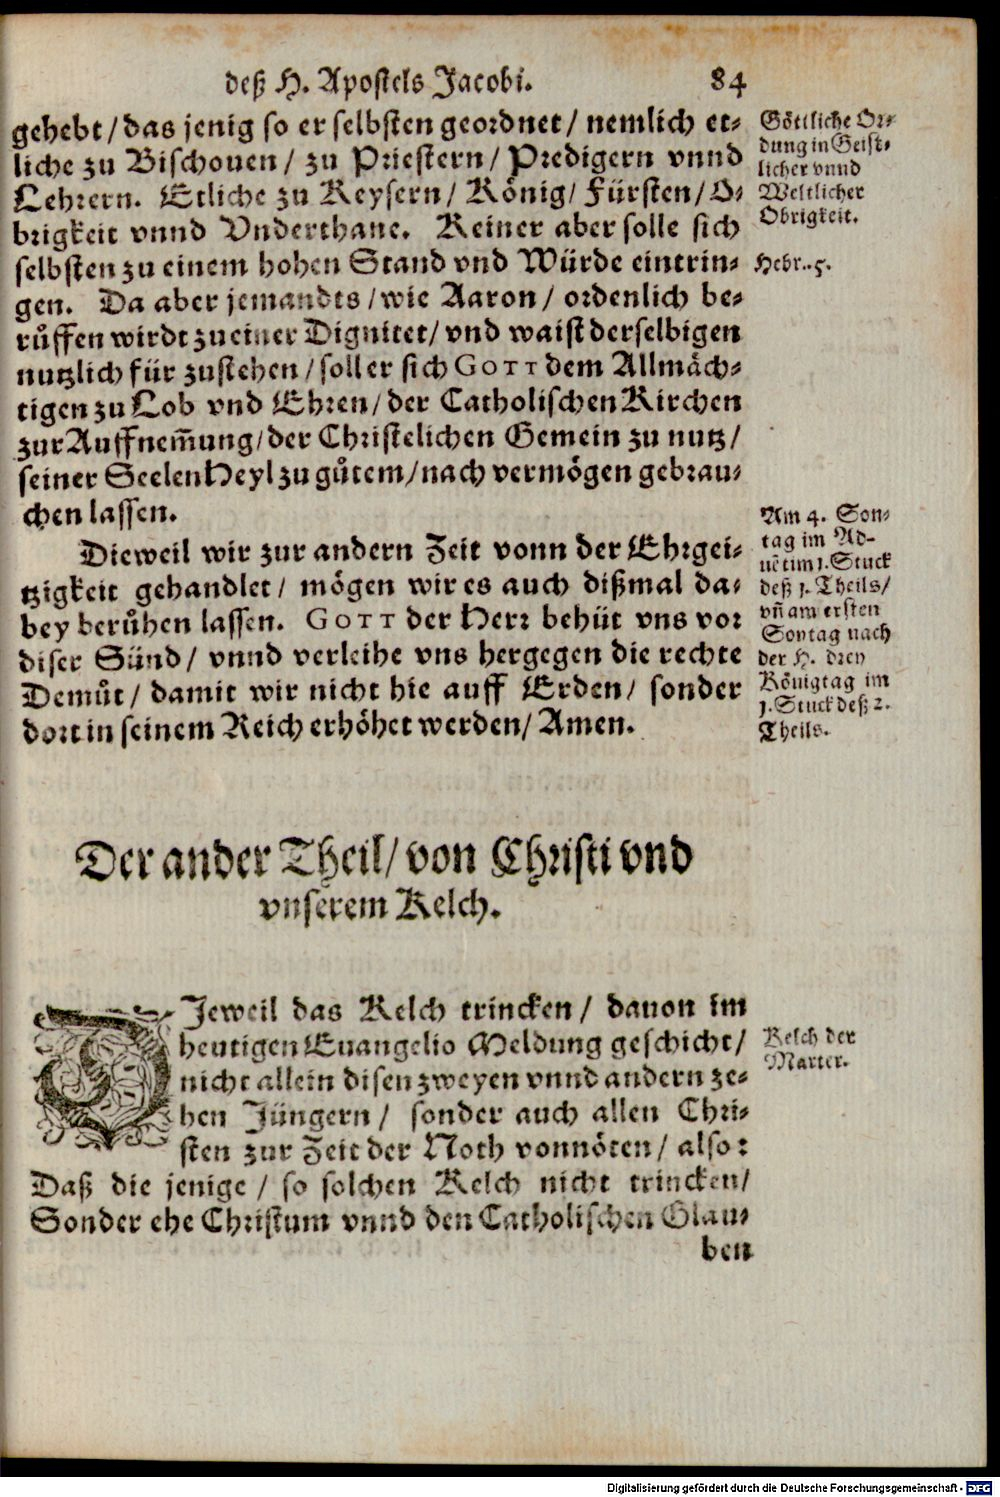 deß H. Apostels Jacobi. 84
gehebt/ das jenig so er selbsten geordnet/ nemlich et-
liche zu Bischouen/ zu Priestern/ Predigern vnnd
Lehrern. Etliche zu Keysern/ König/ Fürsten/ O-
brigkeit vnnd Vnderthane. Keiner aber solle sich
selbsten zu einem hohen Stand vnd Würde eintrin-
gen. Da aber jemandts/ wie Aaron/ ordenlich be-
růffen wirdt zu einer Dignitet/ vnd waist derselbigen
nutzlich für zustehen/ soll er sich GOTT dem Allmäch-
tigen zu Lob vnd Ehren/ der Catholischen Kirchen
zur Auffnem̃ung/ der Christelichen Gemein zu nutz/
seiner Seelen Heyl zu gůtem/ nach vermögen gebrau-
chen lassen.
Dieweil wir zur andern Zeit vonn der Ehrgei-
tzigkeit gehandlet/ mögen wir es auch dißmal da-
bey berůhen lassen. GOTT der Herr behüt vns vor
diser Sünd/ vnnd verleihe vns hergegen die rechte
Demůt/ damit wir nicht hie auff Erden/ sonder
dort in seinem Reich erhöhet werden/ Amen.
Göttliche Or-
dung in Geist-
licher vnnd
Weltlicher
Obrigkeit.
Hebr. 5.
Am 4. Son-
tag im Ad-
uẽt im 1. Stuck
deß 1. Theils/
vñ am ersten
Sontag nach
der H. drey
Königtag im
1. Stuck deß 2.
Theils.
Der ander Theil/ von Christi vnd
vnserem Kelch.
DJeweil das Kelch trincken/ dauon im
heutigen Euangelio Meldung geschicht/
nicht allein disen zweyen vnnd andern ze-
hen Jüngern/ sonder auch allen Chri-
sten zur Zeit der Noth vonnöten/ also:
Daß die jenige/ so solchen Kelch nicht trincken/
Sonder ehe Christum vnnd den Catholischen Glau-
ben
Kelch der
Marter.
Digitalisierung gefördert durch die Deutsche Forschungsgemeinschaft - DFG